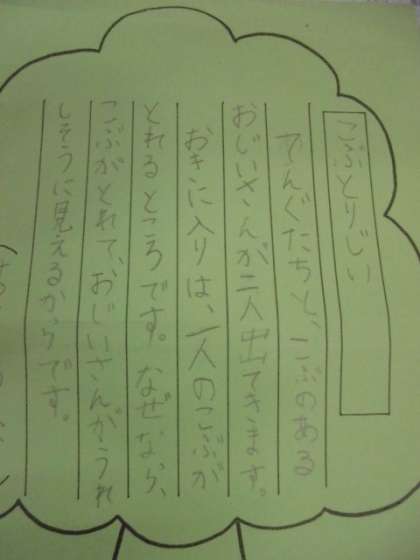 こぶとりじい
てんぐたちと、こぶのある
おじいさんが二人出てきます。
おきに入りは、一人のこぶが
とれるところです。なぜなら、
こぶがとれて、おじいさんがうれ
しそうに見えるからです。